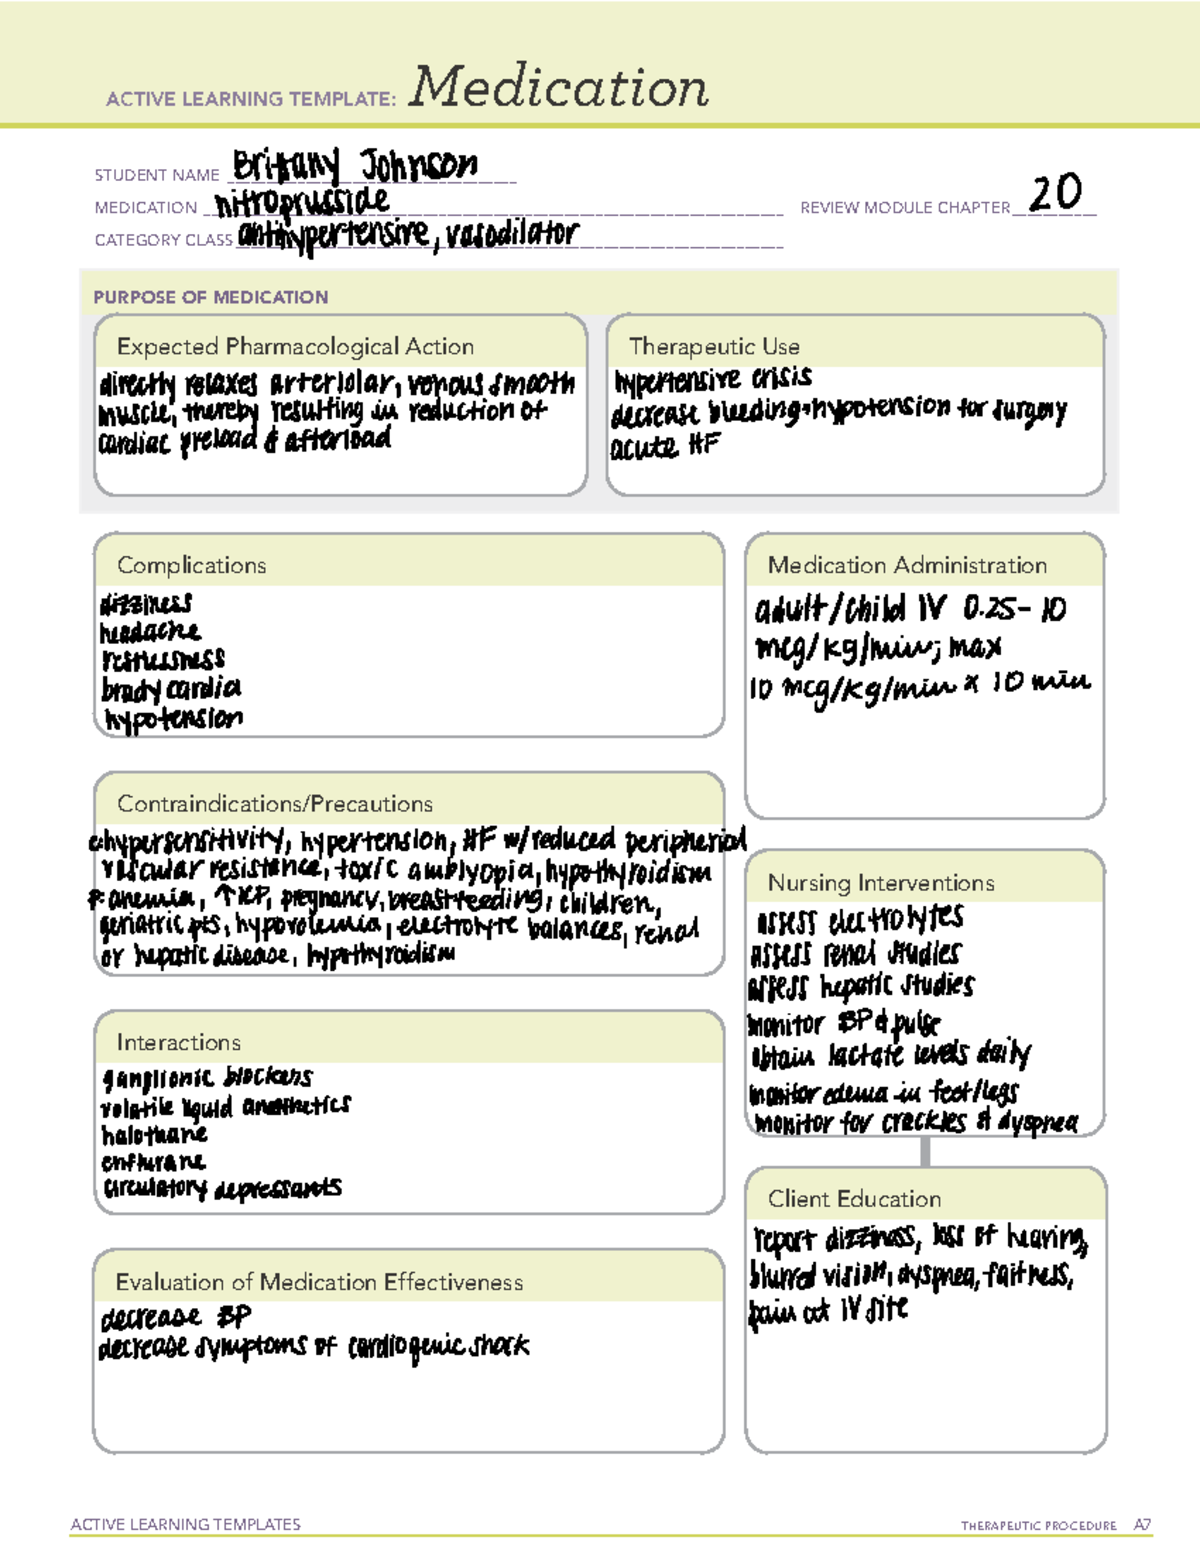 ACTIVE LEARNING TEMPLATE: Medication
STUDENT NAME Brittany Johnson
MEDICATION nitroprusside
REVIEW MODULE CHAPTER 20
CATEGORY CLASS antihypertensive, vasodilator
PURPOSE OF MEDICATION
Expected Pharmacological Action
directly relaxes arteriolar, venous smooth
muscle, thereby resulting in reduction of
cardiac preload & afterload
Therapeutic Use
hypertensive crisis
decrease bleeding+hypotension for surgery
acute HF
Complications
dizziness
headache
restlessness
bradycardia
hypotension
Medication Administration
adult/child IV 0.25-10
mcg/kg/min; max
10 mcg/kg/min x 10 min
Contraindications/Precautions
c:hypersensitivity, hypertension, HF w/reduced peripherial
vascular resistance, toxic amblyopia, hypothyroidism
P: anemia, ↑ICP, pregnancy, breastfeeding, children,
geriatric pts, hypovolemia, electrolyte balances, renal
or hepatic disease, hypothyroidism
Nursing Interventions
assess electrolytes
assess renal studies
assess hepatic studies
monitor BP & pulse
obtain lactate levels daily
monitor edema in feet/legs
monitor for crackles & dyspnea
Interactions
ganglionic blockers
volatile liquid anesthetics
halothane
enflurane
circulatory depressants
Client Education
report dizziness, loss of hearing,
blurred vision, dyspnea, faitness,
pain at IV site
Evaluation of Medication Effectiveness
decrease BP
decrease symptoms of cardiogenic shock
ACTIVE LEARNING TEMPLATES
THERAPEUTIC PROCEDURE A7